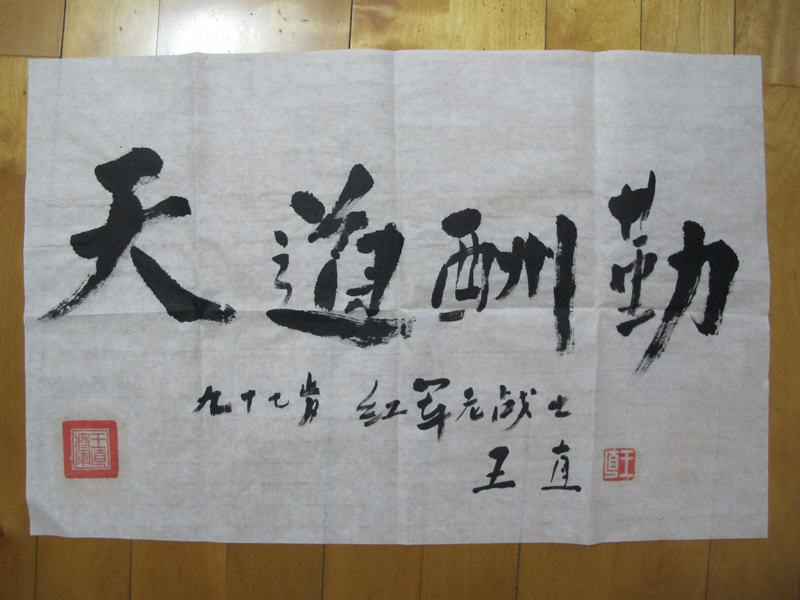 天道酬勤
九十七岁 红军老战士
王直
王直